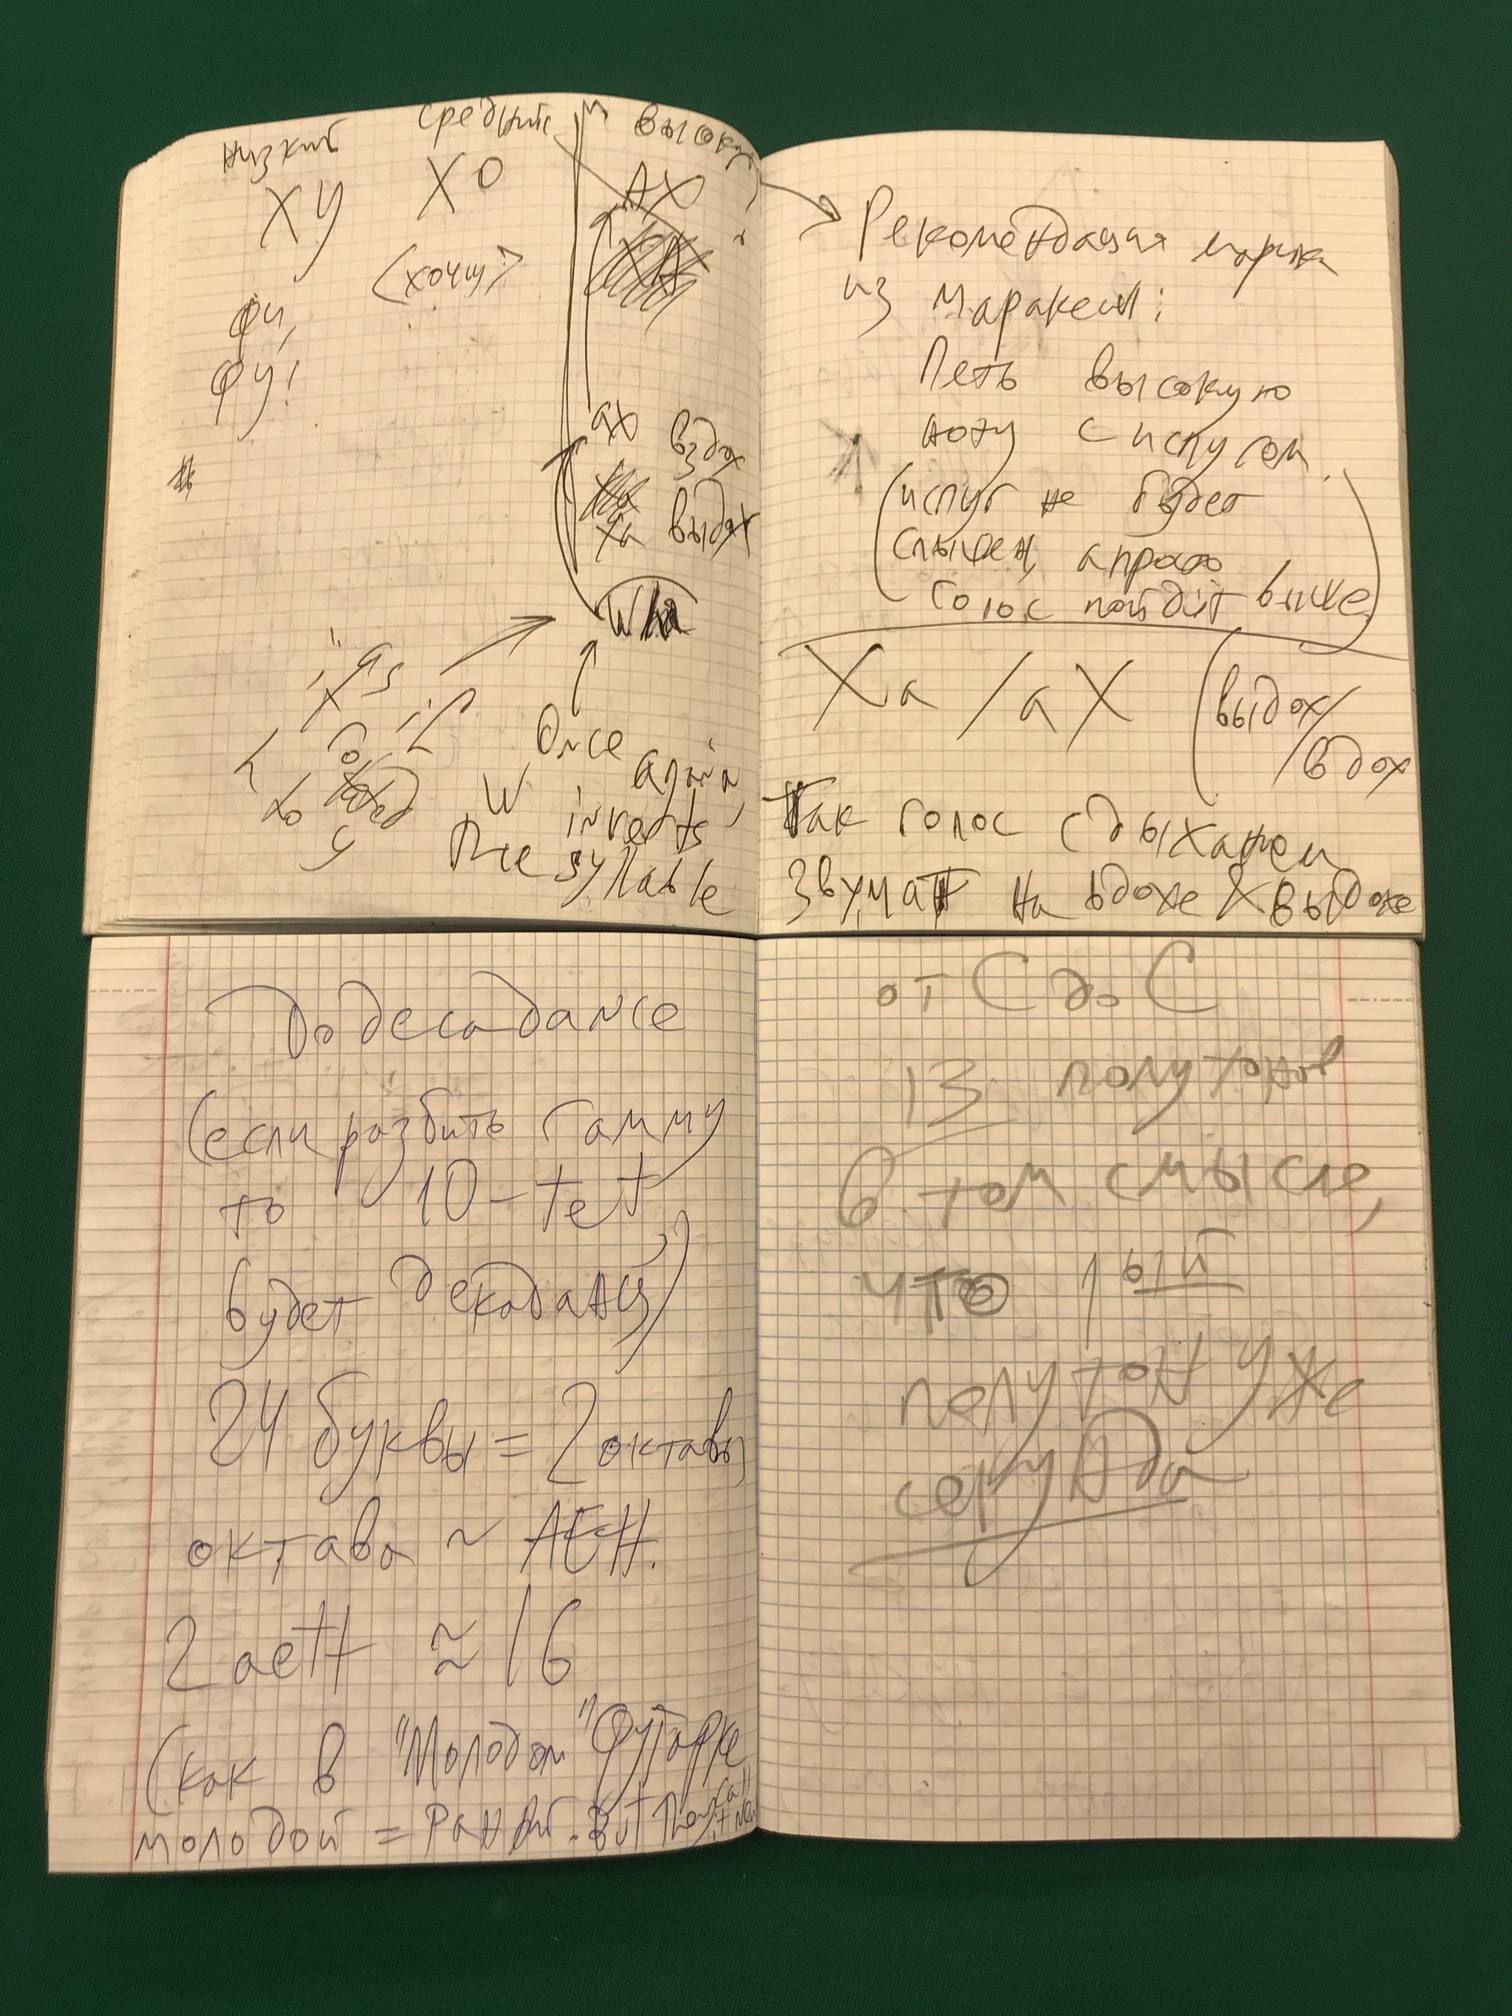 низкий средний высокий
ХУ ХО АХ
(хочу)
фи,
фу!
ах вздох
ха выдох
Wha
Once again,
W inverts
The syllable
Рекомендация
из Маракеш:
Петь высокую
ноту с испугом
(испуг не будет
слышен, а просто
голос пойдёт выше)
Ха / аХ (выдох/
вдох
Так голос с дыханием
звучат на вдохе & выдохе
Dodecadance
(если разбить гамму
то 10-tet,
будет декаданц)
24 буквы = 2 октавы
октава ~ AEH.
2 aett ≈ 16
(как в "Молодом" Футарке
молодой = . But They call it New
от C до C
13 полутонов
в том смысле,
что 1ый
полутон уже
секунда